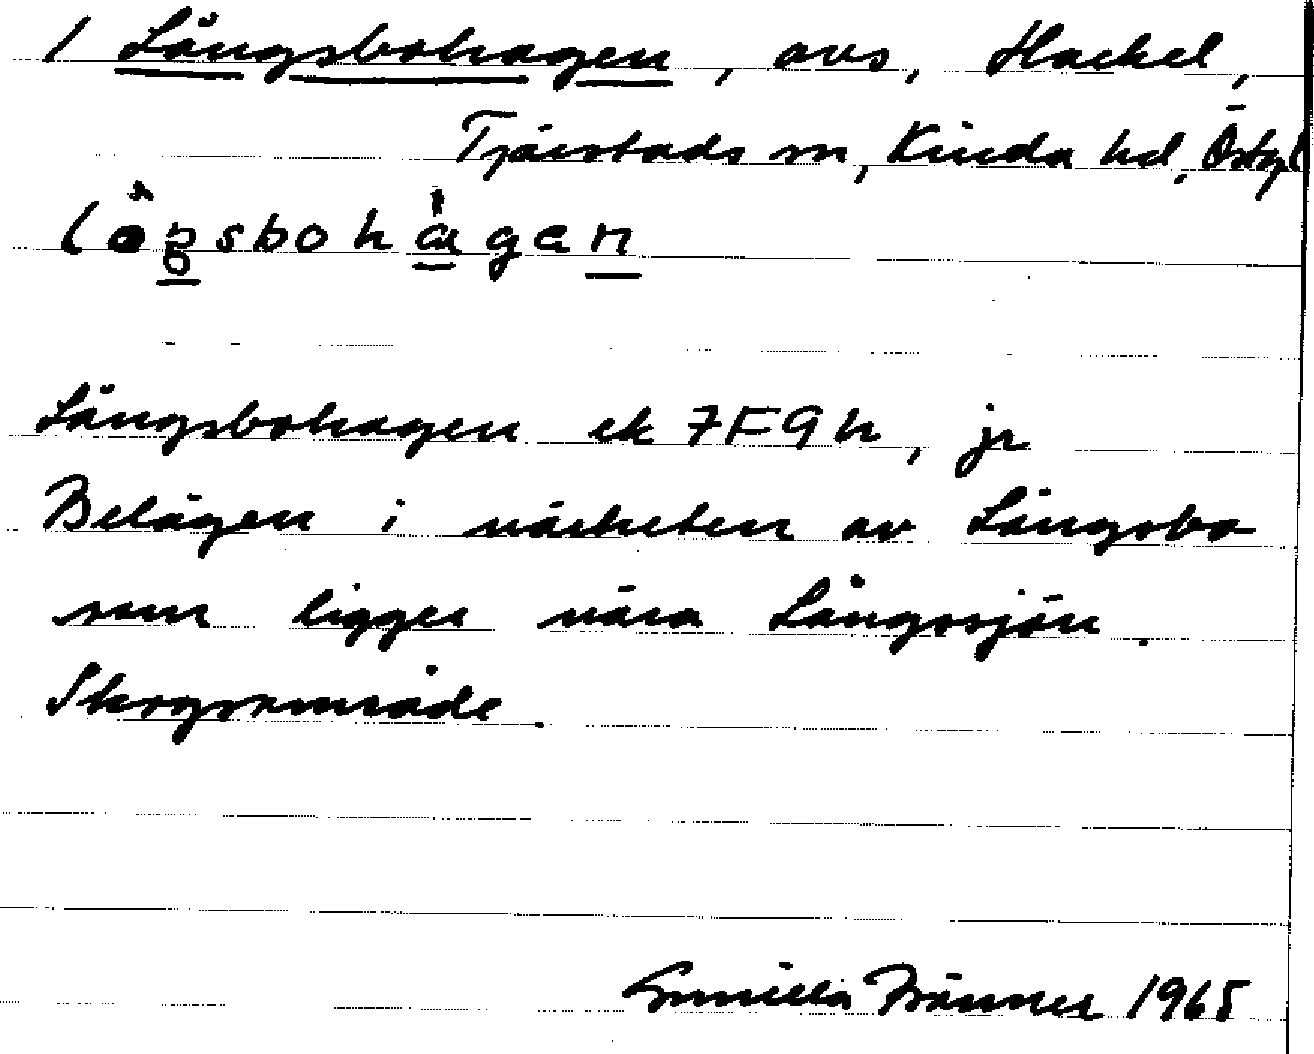 / Långsbohagen, avs, Hackel,
Tjärstads sn, Kinda hd, Östgl
Långsbohagen ek 7F9h, jr
Belägen i närheten av Långsbo
som ligger nära Långsjön.
Skogsområde.
Gunilla Bränner 1965